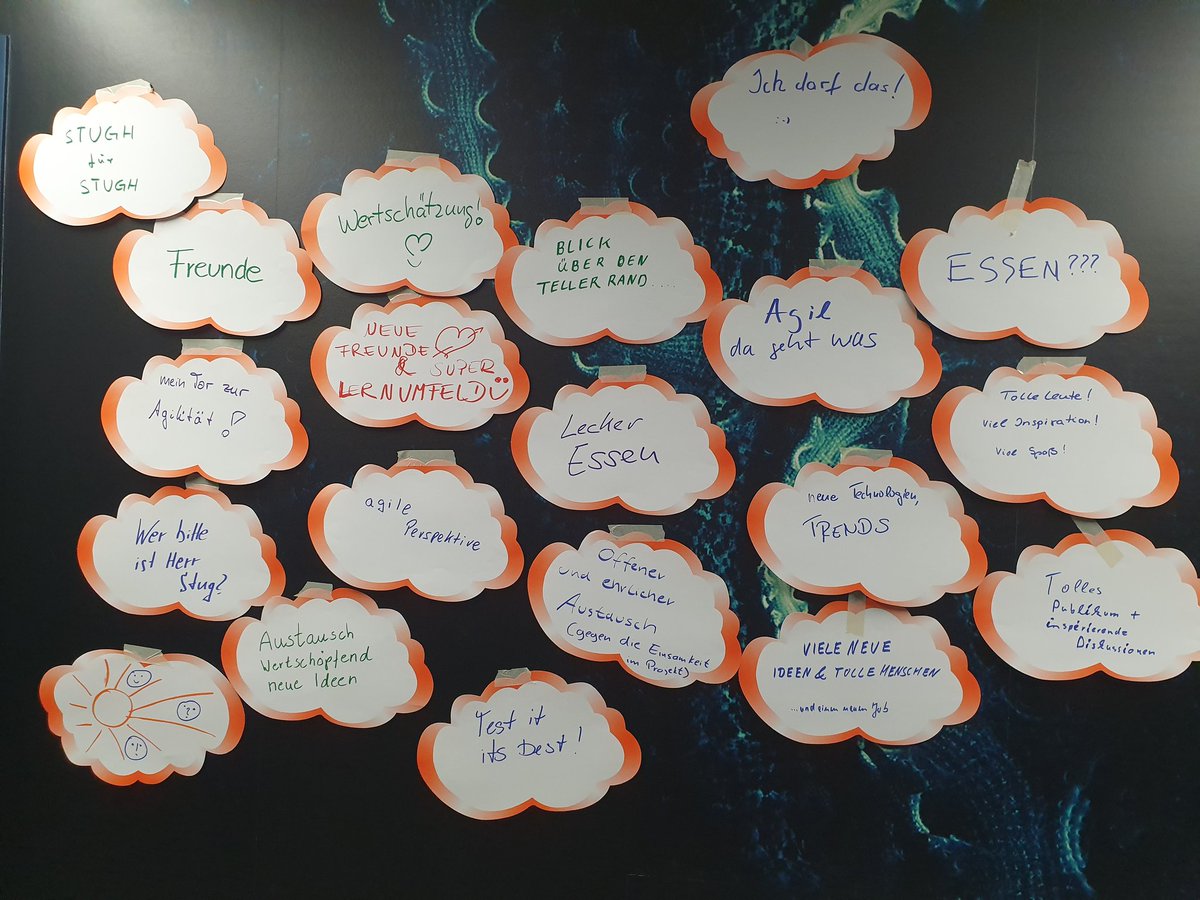 STUGH
für
STUGH
Freunde
Wertschätzung!
Ich darf das!
:-)
BLICK
ÜBER DEN
TELLERRAND....
ESSEN???
NEUE
FREUNDE
& SUPER
LERNUMFELD
Agil
da geht was
mein Tor zur
Agilität!
Lecker
Essen
Tolle Leute!
viel Inspiration!
viel Spaß!
Wer bitte
ist Herr
Stug?
agile
Perspektive
neue Technologien,
TRENDS
Offener
und ehrlicher
Austausch
(gegen die Einsamkeit
im Projekt)
Tolles
Publikum +
inspirierende
Diskussionen
Austausch
Wertschöpfend
neue Ideen
VIELE NEUE
IDEEN & TOLLE MENSCHEN
...und einen neuen Job
Test it
its best!